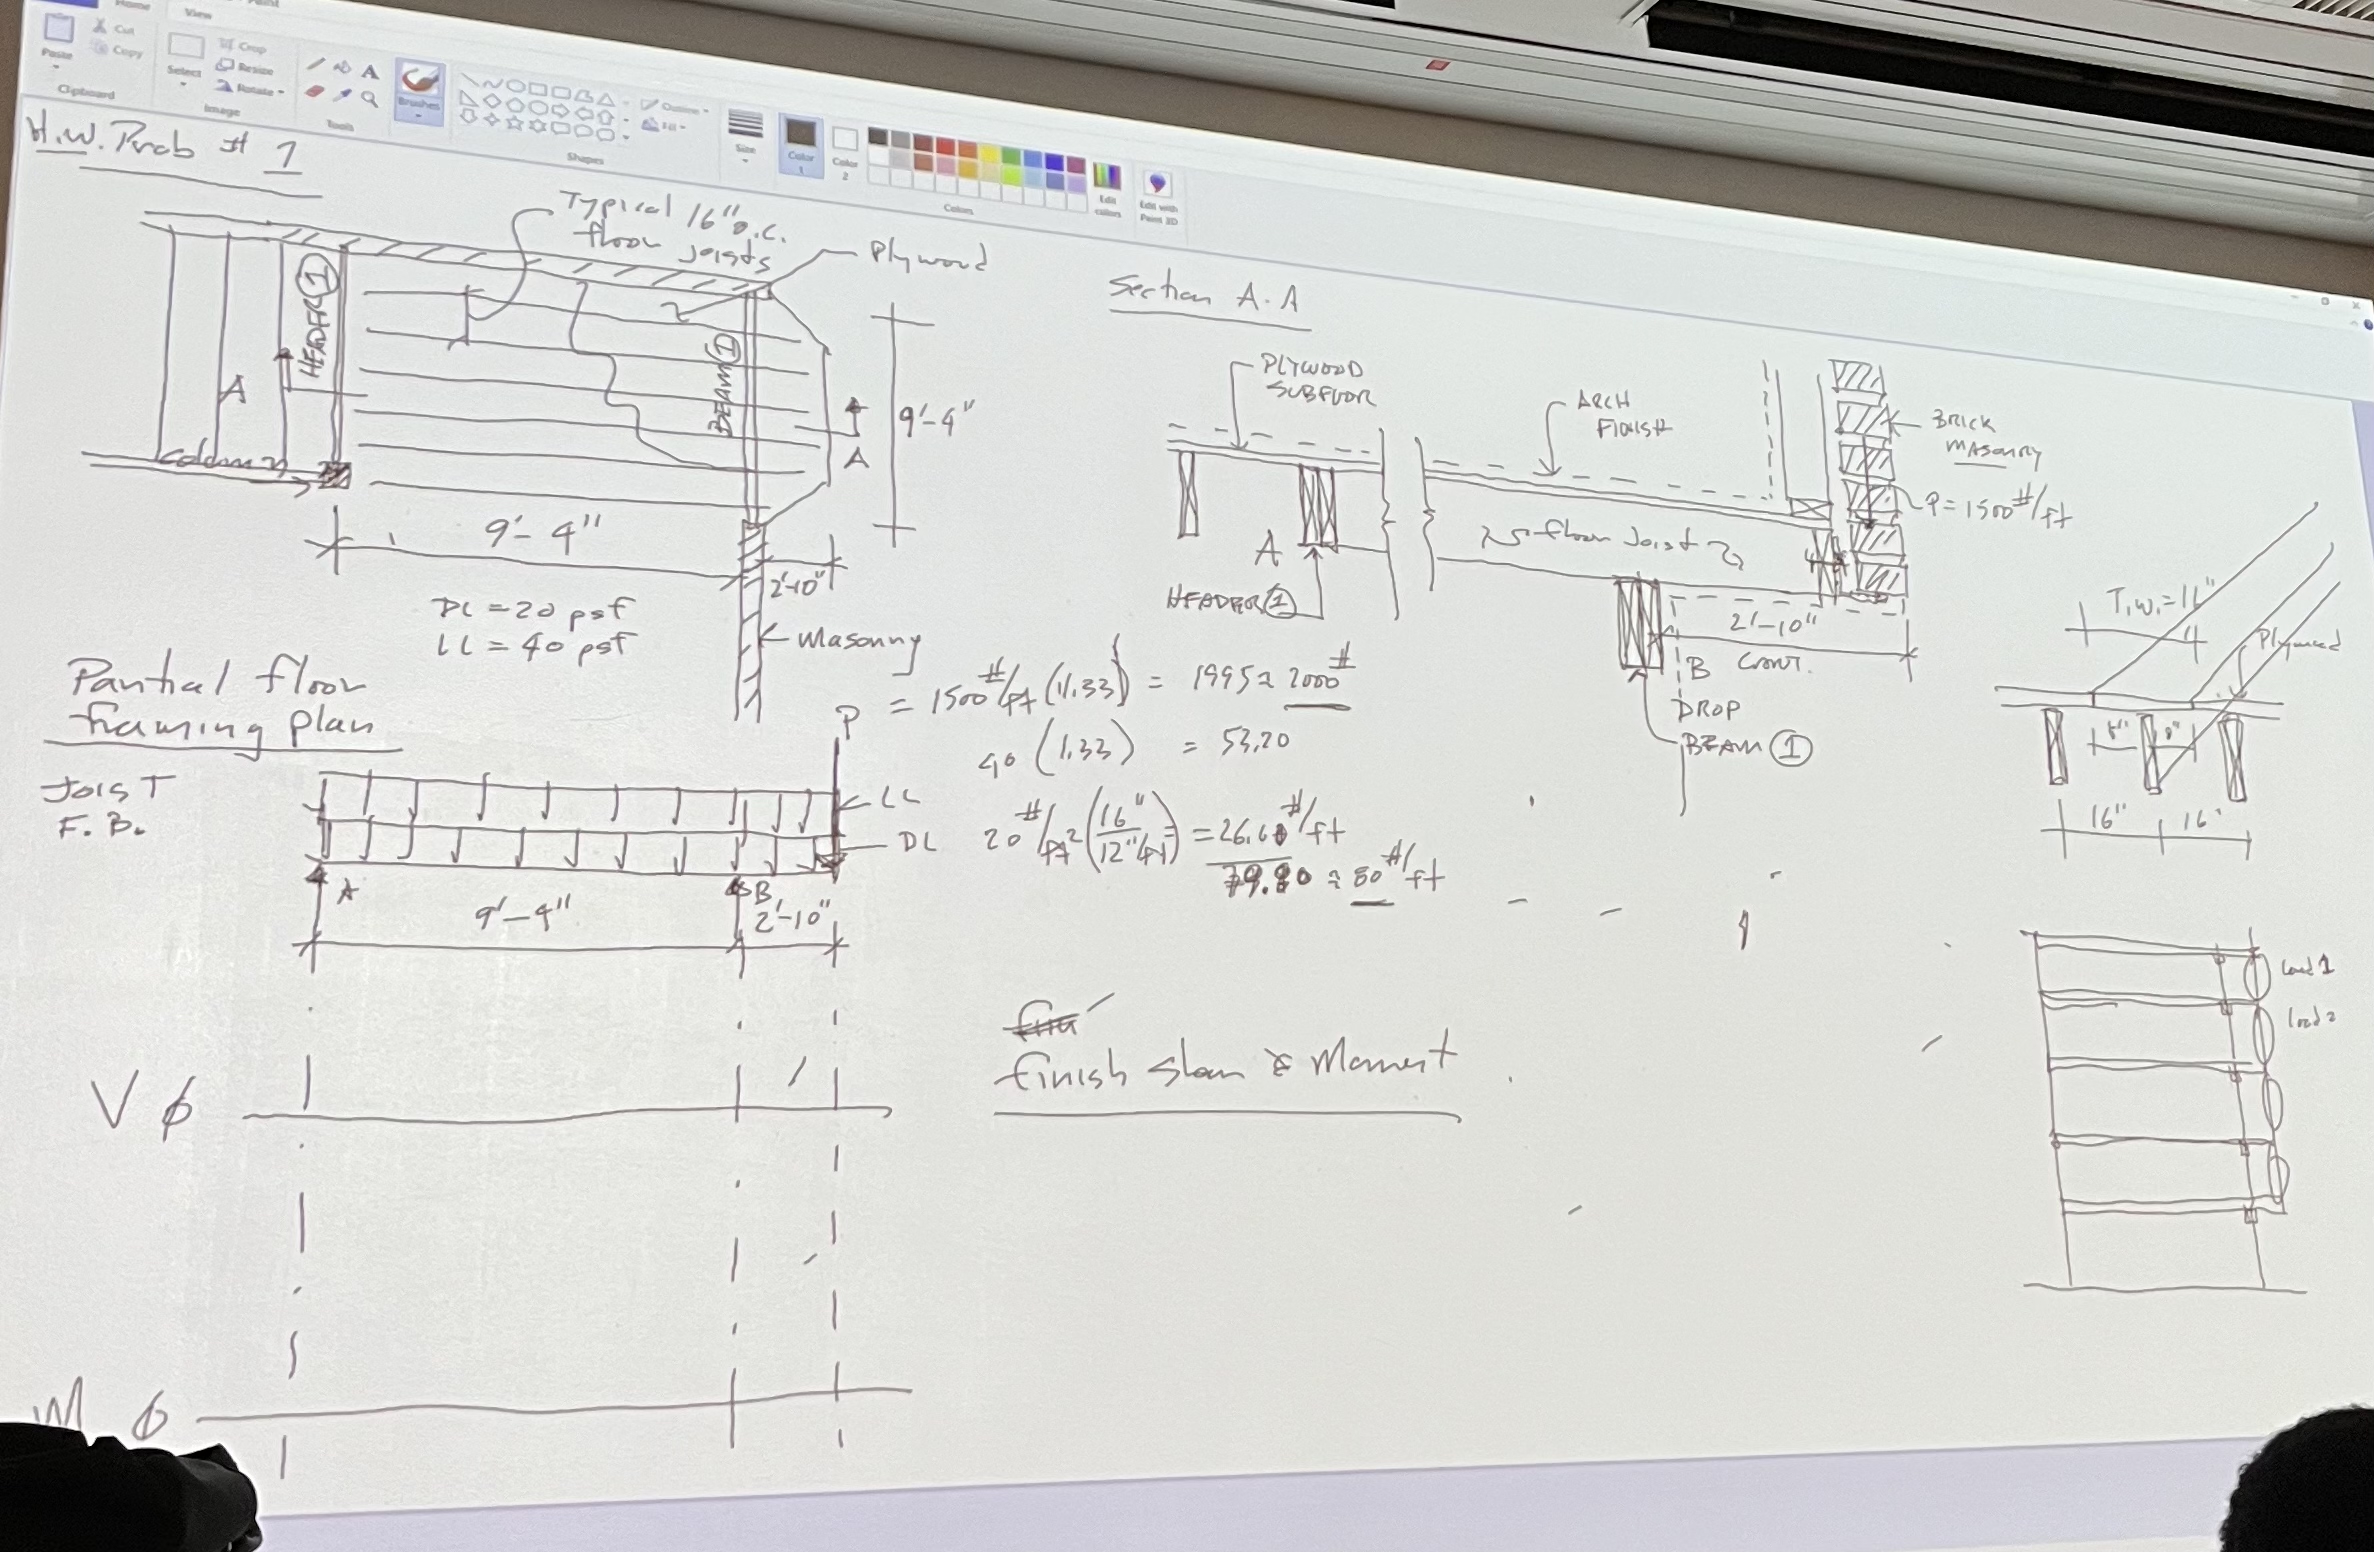 Home
View
Paste
Cut
Copy
Clipboard
Select
Crop
Resize
Rotate
Image
Tools
Brushes
Shapes
Outline
Fill
Size
Color
1
Color
2
Colors
Edit
colors
Edit with
Paint 3D
H.W. Prob # 1
Typical 16" o.c.
floor joists
Plywood
HEADER 1
BEAM 1
A
A
column
9'-4"
9'-4"
2'-10"
DL = 20 psf
LL = 40 psf
Masonry
Partial floor
framing plan
Section A-A
PLYWOOD
SUBFLOOR
ARCH
FINISH
BRICK
MASONRY
P = 1500 #/ft
floor Joist
A
HEADER 1
2'-10"
CANT.
B
DROP
BEAM 1
T.W. = 16"
Plywood
8" 8"
16" 16"
P = 1500 #/ft (1.33) = 1995 ≈ 2000 #
40 (1.33) = 53.20
20 #/ft² (16"/12"/ft) = 26.60 #/ft
79.80 ≈ 80 #/ft
JOIST
F.B.
LL
DL
A
B
9'-4"
2'-10"
Load 1
load 2
finish shear & Moment
V
M